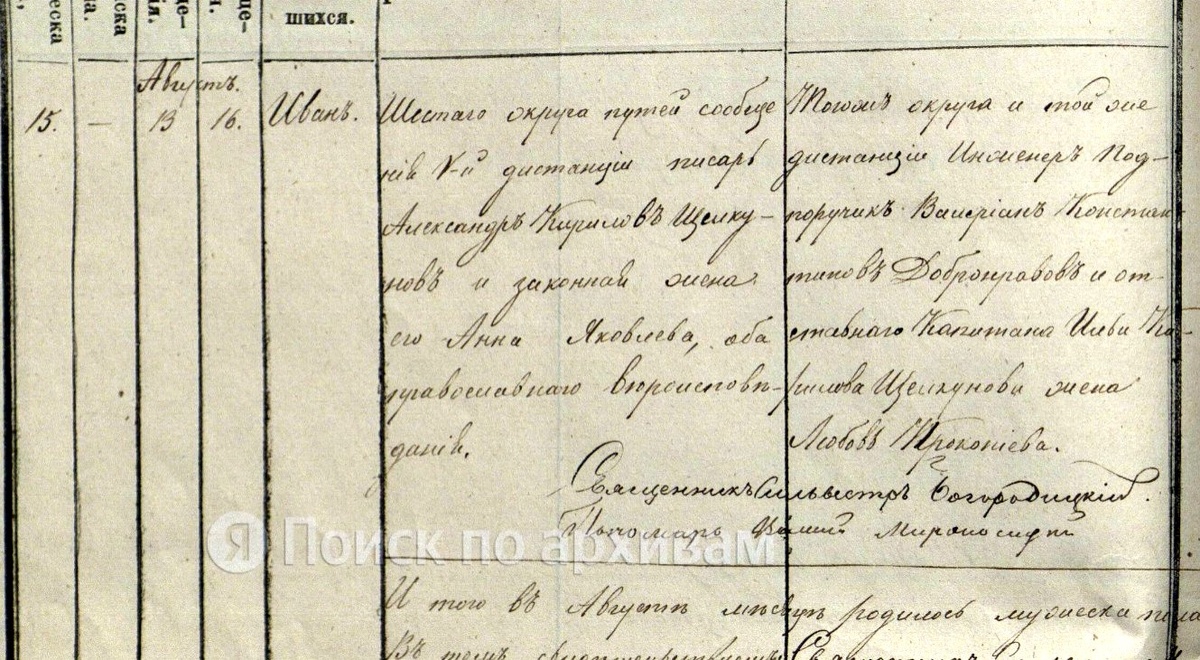 шихся.
Августъ.
15. — 13 16. Иванъ.
Шестаго округа путей сообще
нія V-й дистанціи писарь
Александръ Кириловъ Щелку-
новъ и законная жена
его Анна Яковлева, оба
православнаго вѣроисповѣ-
данія.
Тогожъ округа и той же
дистанціи Инженеръ Под-
поручикъ Валеріанъ Констан
тиновъ Добронравовъ и от-
ставнаго Капитана Ильи Ки
рилова Щелкунова жена
Любовь Прокопіева.
Священникъ Сильвестръ Богородицкій.
Пономарь Мироносицкій
Поиск по архивам
И того въ Августѣ мѣсяцѣ родилось мужеска пола
Въ томъ свидѣтельствуемъ